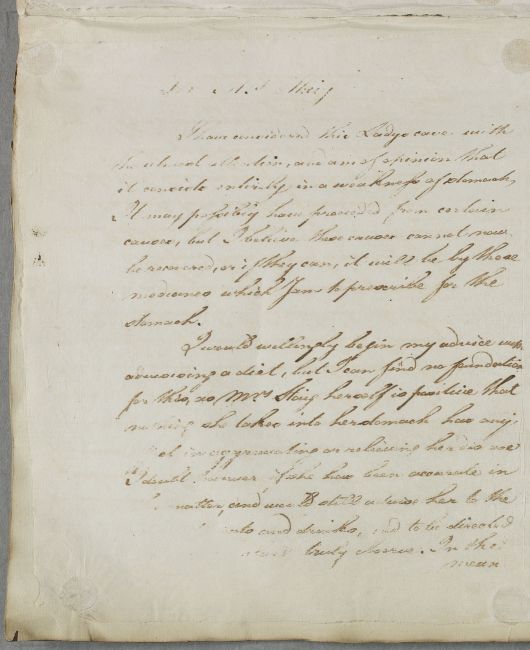 I have considered this Ladys case with
the utmost attention, and am of opinion that
it consists entirely in a weakness of stomach.
It may possibly have proceeded from certain
causes, but I believe these causes cannot now
be removed, or if they can, it will be by those
medicines which I am to prescribe for the
stomach.
I would willingly begin my advice with
advising a diet, but I can find no foundation
for this, as Mrs Staig herself is positive that
nothing she takes into her stomach has any
in aggravating or relieving her disease
I doubt however if she has been accurate in
matter, and would still advise her to the
and drinks, and to be directed
truly observes. In the
mean